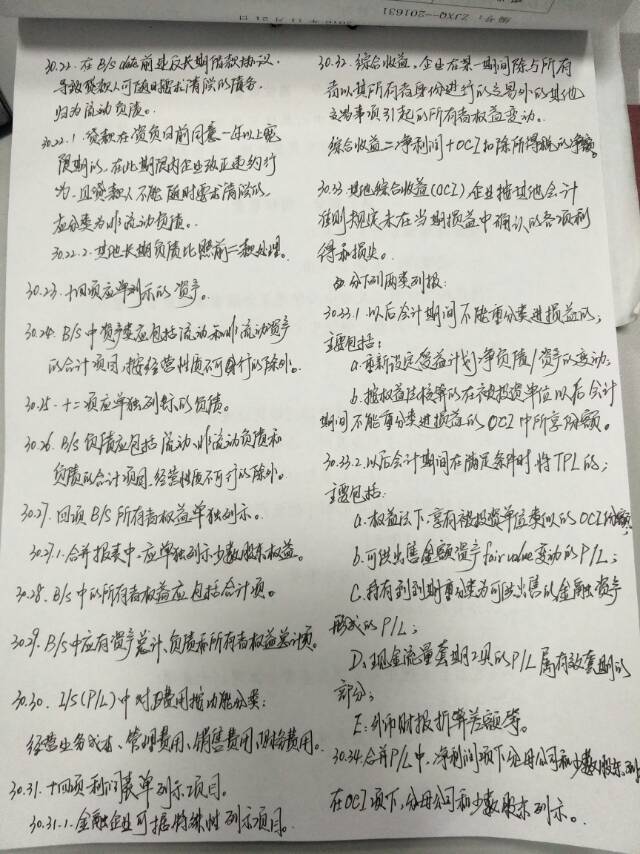 编号：ZJXQ-201631
30.22. 在B/S日或前违反长期借款协议，
导致贷款人可随时要求清偿的债务，
归为流动负债。
30.22.1. 贷款在资负日前同意一年以上宽
限期的，在此期限内企业改正违约行
为，且贷款人不能随时要求清偿的，
应分类为非流动负债。
30.22.2. 其他长期负债比照前二款处理。
30.23. 十四项应单列示的资产。
30.24. B/S中资产类应包括流动和非流动资产
的合计项目，按经营性质不可行的除外。
30.25. 十二项应单独列示的负债。
30.26. B/S负债应包括流动、非流动负债和
负债的合计项目，经营性质不可行的除外。
30.27. 四项B/S所有者权益单独列示。
30.27.1. 合并报表中，应单独列示少数股东权益。
30.28. B/S中的所有者权益应包括合计项。
30.29. B/S中应有资产总计、负债和所有者权益总计项。
30.30. I/S(P/L)中对费用按功能分类：
经营业务成本、管理费用、销售费用、财务费用。
30.31. 十四项利润表单列示项目。
30.31.1. 金融企业可据特殊性列示项目。
30.32. 综合收益，企业在某一期间除与所有
者以其所有者身份进行的交易外的其他
交易事项引起的所有者权益变动。
综合收益=净利润+OCI扣除所得税的净额。
30.33. 其他综合收益(OCI) 企业据其他会计
准则规定未在当期损益中确认的各项利
得和损失。
分下列两类列报：
30.33.1 以后会计期间不能重分类进损益的；
主要包括：
a. 重新设定受益计划净负债/资产的变动；
b. 按权益法核算的在被投资单位以后会计
期间不能重分类进损益的OCI中所享份额。
30.33.2. 以后会计期间在满足条件时，将TPL的；
主要包括：
a. 权益法下，享有被投资单位类似的OCI份额；
b. 可供出售金额资产fair value变动的P/L；
C. 持有到到期重分类为可供出售的金融资产
形成的P/L；
D、现金流量套期工具的P/L属有效套期的
部分；
E. 外币财报折算差额等。
30.34. 合并P/L中，净利润项下分母公司和少数股东列
在OCI项下，分母公司和少数股东列示。